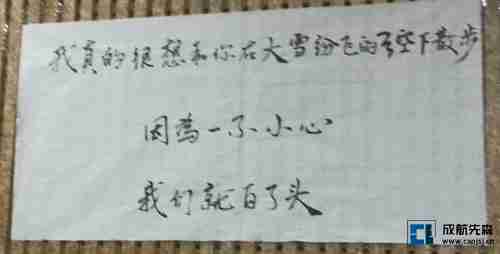 我真的很想和你在大雪纷飞的夜空下散步
因为一不小心
我们就白了头
成航先森
www.caojsj.cn